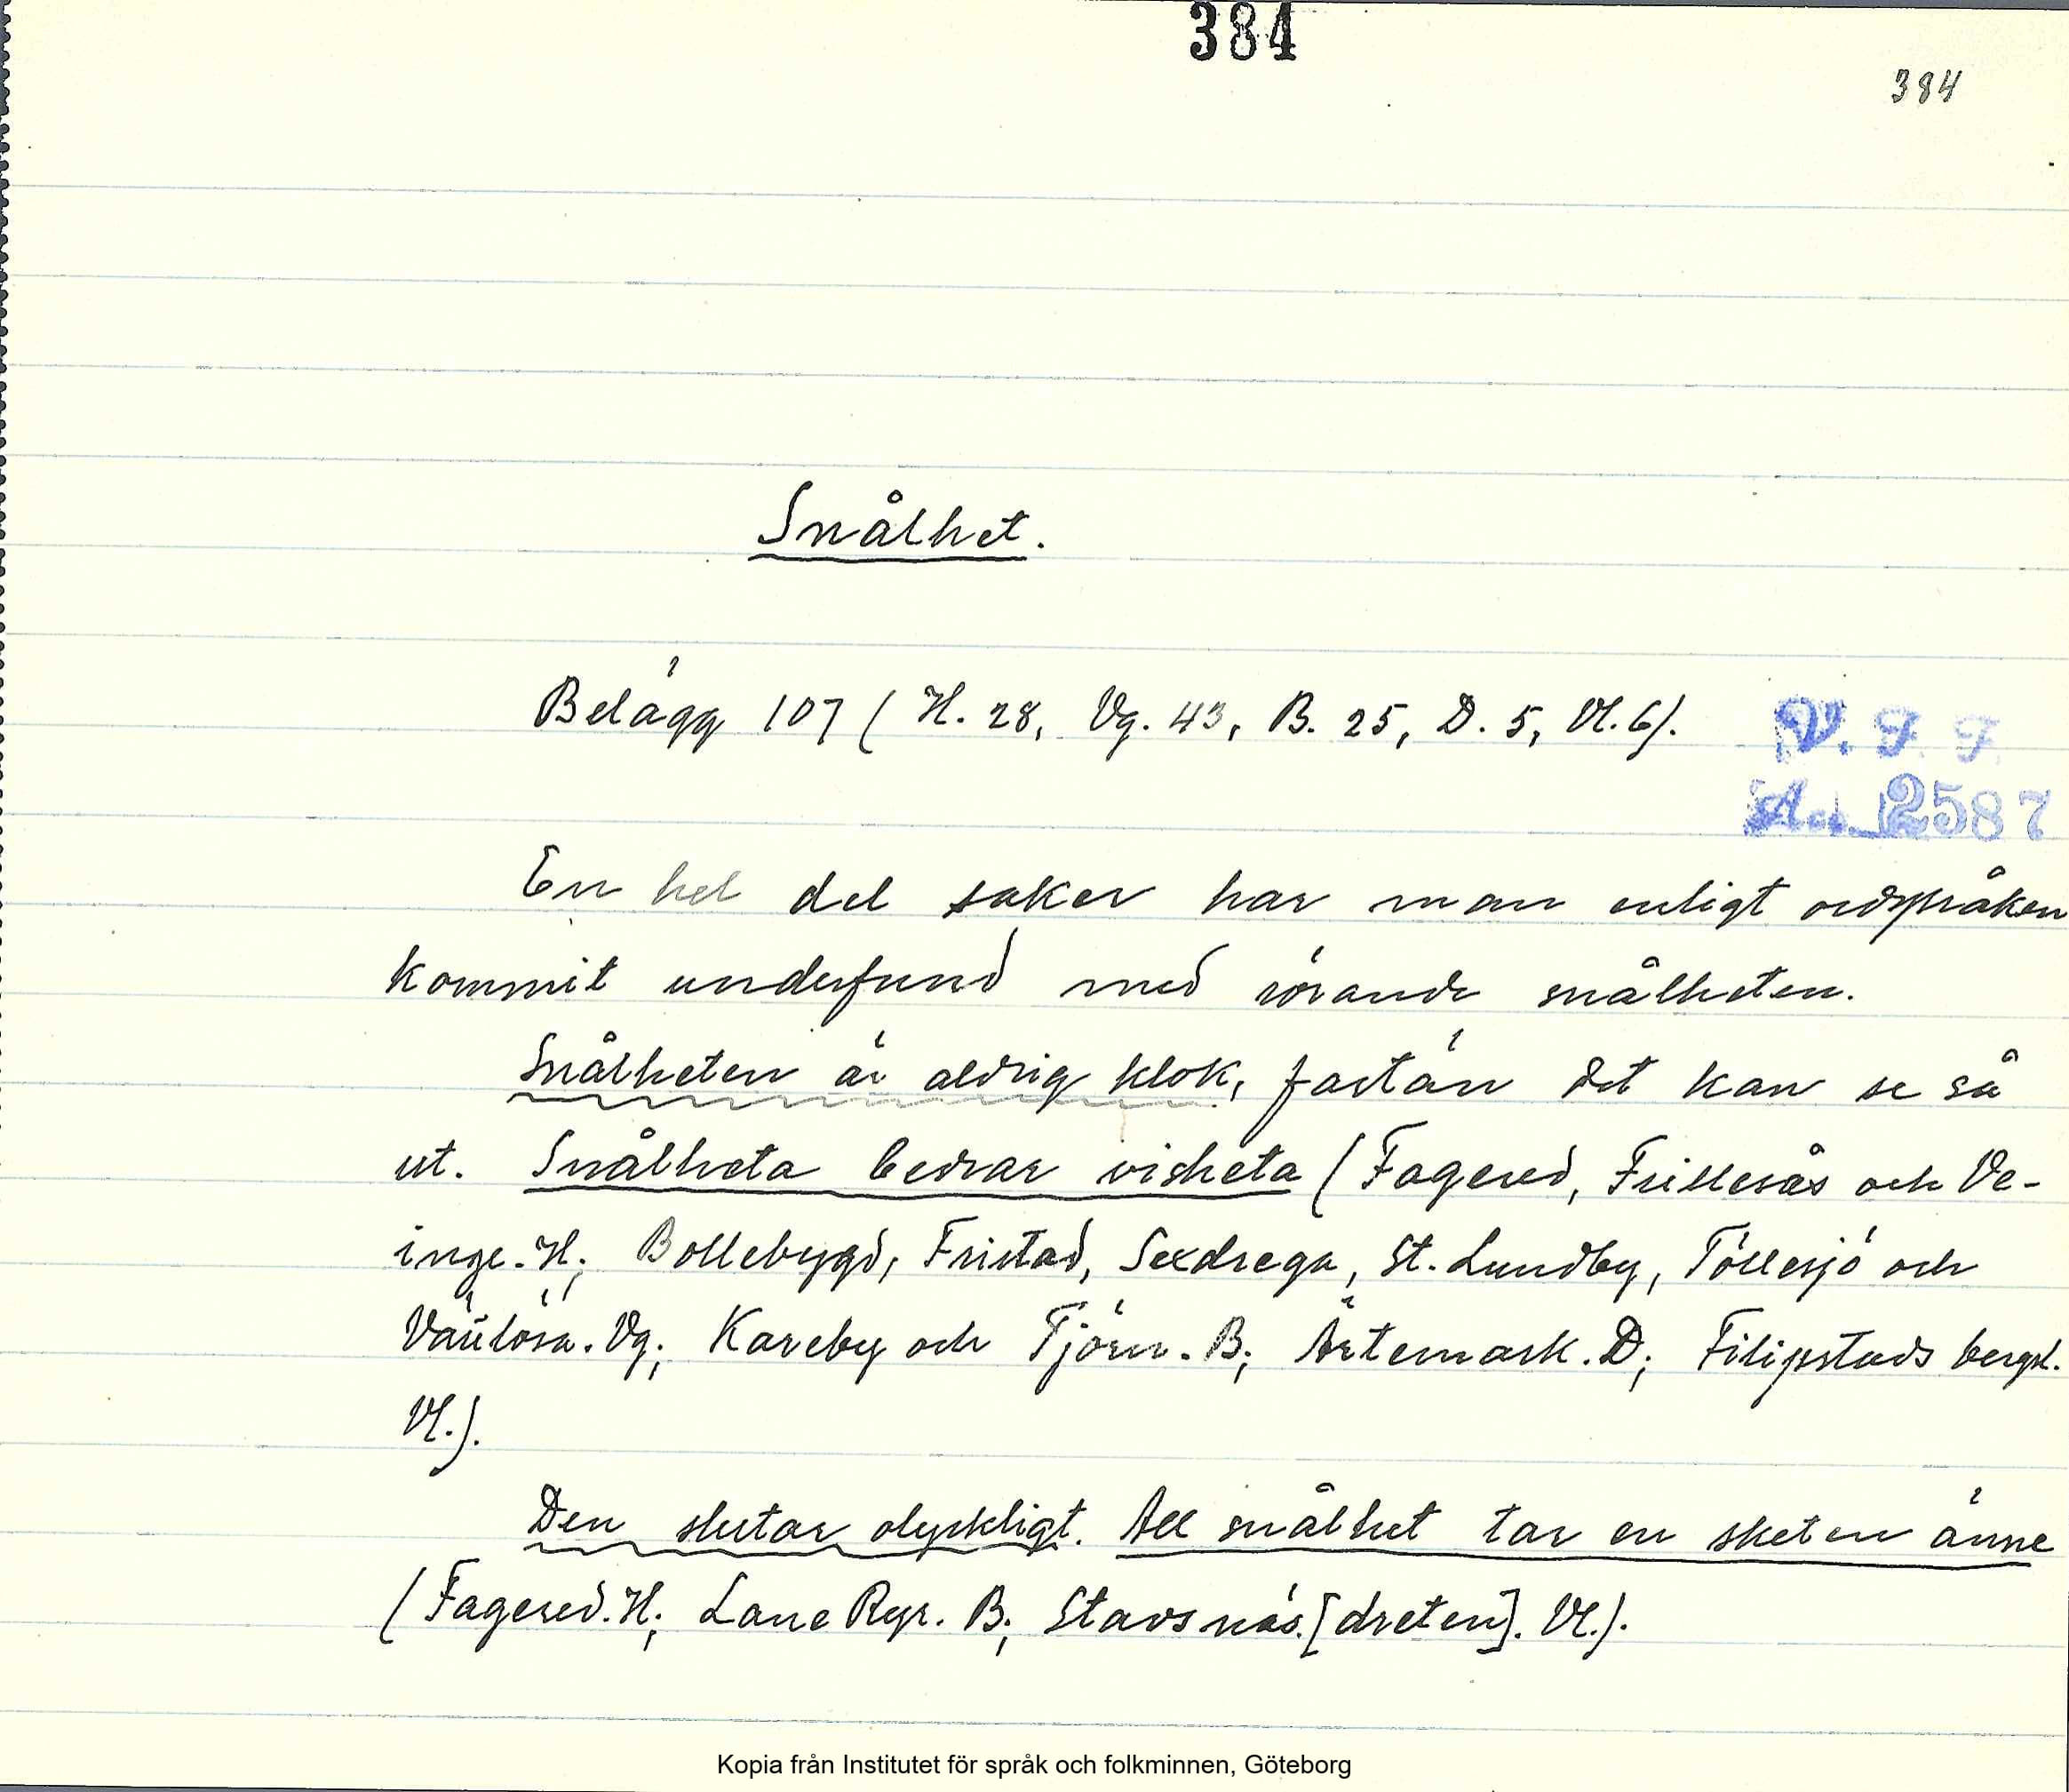 384
384
Snålhet.
Belägg 107 (H. 28, Vg. 43, B. 25, D. 5, Vl. 6).
V. F. F.
Acc. 2587
En hel del saker har man enligt ordspråken
kommit underfund med rörande snålheten.
Snålheten är aldrig klok, fastän det kan se så
ut. Snålheta bedrar visheta (Fagered, Frillesås och Ve-
inge. H; Bollebygd, Fristad, Sexdrega, St. Lundby, Töllesjö och
Vänlösa. Vg; Kareby och Tjörn. B; Ärtemark. D; Filipstads bergsl.
Vl.).
Den slutar olyckligt. All snålhet tar en sketen änne
(Fagered. H; Lane Ryr. B; Stavsnäs. [dreten]. Vl.).
Kopia från Institutet för språk och folkminnen, Göteborg